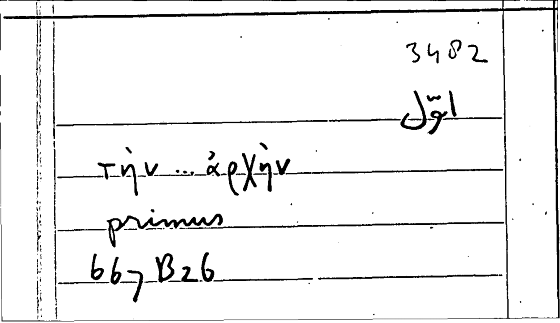 3482
اوّل
τὴν ... ἀρχὴν
primus
667 B26